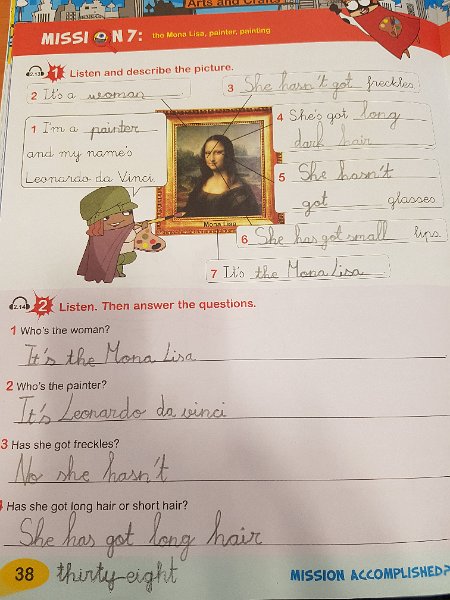 Arts and Crafts
MISSION 7: the Mona Lisa, painter, painting
2.13 1 Listen and describe the picture.
2 It's a woman
3 She hasn't got freckles
1 I'm a painter
and my name's
Leonardo da Vinci
4 She's got long
dark hair
5 She hasn't
got glasses
Mona Lisa
6 She has got small lips
7 It's the Mona Lisa
2.14 2 Listen. Then answer the questions.
1 Who's the woman?
It's the Mona Lisa
2 Who's the painter?
It's Leonardo da vinci
3 Has she got freckles?
No she hasn't
4 Has she got long hair or short hair?
She has got long hair
38 thirty-eight
MISSION ACCOMPLISHED?